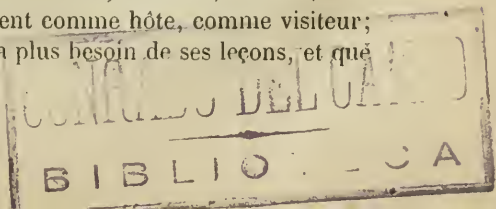 ent comme hôte, comme visiteur;
a plus besoin de ses leçons, et que
BIBLIO CA